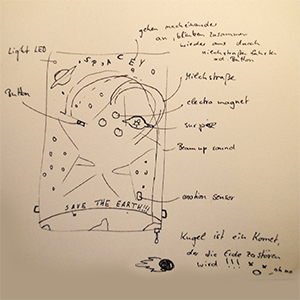 gehen nacheinander
an, blinken zusammen
wieder aus durch
Milchstraße fahrten
od Button
Light LED
SPACEY
Milchstraße
Button
electro magnet
surprise
Beam up sound
motion sensor
SAVE THE EARTH!!!
Kugel ist ein Komet,
der die Erde zerstören
wird !!!
oh no